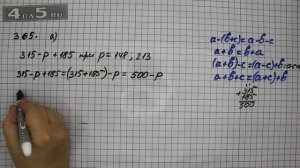 4 GDZ.RU 5
365. а)
315-p+185 при p=148; 213
315-p+185=(315+185)-p=500-p
a-(b+c)=a-b-c
a+b=b+a
(a+b)-c=(a-c)+b
a+b+c=(a+c)+b
+315
185
500